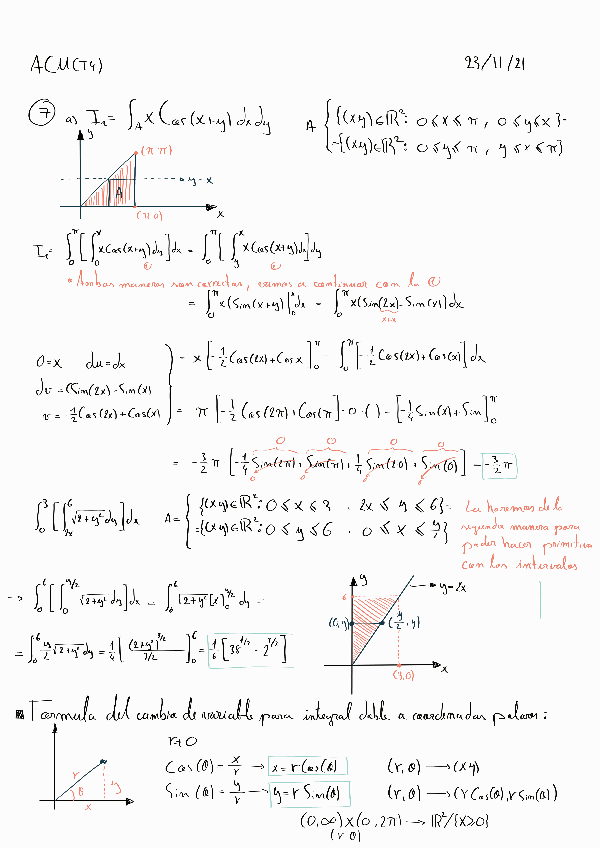 ACM(T4) 23/11/21
7 a) I₁ = ∫_A x Cos(x+y) dxdy A { {(x,y)∈ℝ²: 0≤x≤π, 0≤y≤x}=
={(x,y)∈ℝ²: 0≤y≤π, y≤x≤π}
y
(π,π)
y=x
A
(π,0) x
I₁= ∫₀^π [∫₀^x x Cos(x+y)dy]dx = ∫₀^π [∫_y^π x Cos(x+y)dx]dy
* Ambas maneras son correctas, vamos a continuar con la ①
= ∫₀^π x(Sin(x+y)|₀^x dx = ∫₀^π x(Sin(2x)-Sin(x))dx
x+x
U=x du=dx = x[-1/2 Cos(2x)+Cos x]₀^π - ∫₀^π [-1/2 Cos(2x)+Cos(x)]dx
dv=(Sin(2x)-Sin(x)
v=-1/2 Cos(2x)+Cos(x) = π[-1/2 Cos(2π)+Cos(π)]-0·( )-[-1/4 Sin(x)+Sin]₀^π
0 0 0 0
= -3/2 π [-1/4 Sin(2π)+Sin(π)+1/4 Sin(20)+Sin(0)] = -3/2 π
∫₀^3 [∫_2x^6 √2+y² dy]dx A= { {(x,y)∈ℝ²: 0≤x≤3, 2x≤y≤6}=
={(x,y)∈ℝ²: 0≤y≤6, 0≤x≤y/2}
La haremos de la
segunda manera para
poder hacer primitiva
con los intervalos
-> ∫₀^6 [∫₀^y/2 √2+y² dy]dx = ∫₀^6 √2+y² [x]₀^y/2 dy =
= ∫₀^6 y/2 √2+y² dy = 1/4 [(2+y²)^3/2 / 3/2]₀^6 = 1/6 [38^3/2 - 2^3/2]
y
6
y=2x
(0,y) (y/2, y)
(3,0) x
Formula del cambio de variable para integral doble a coordenadas polares:
r≠0
Cos(θ) = x/r → x = r Cos(θ) (r,θ) → (x,y)
Sin(θ) = y/r → y = r Sin(θ) (r,θ) → (r Cos(θ), r Sin(θ))
r y
θ
x
(0,∞)x(0,2π) → ℝ²/{x≥0}
(r θ)